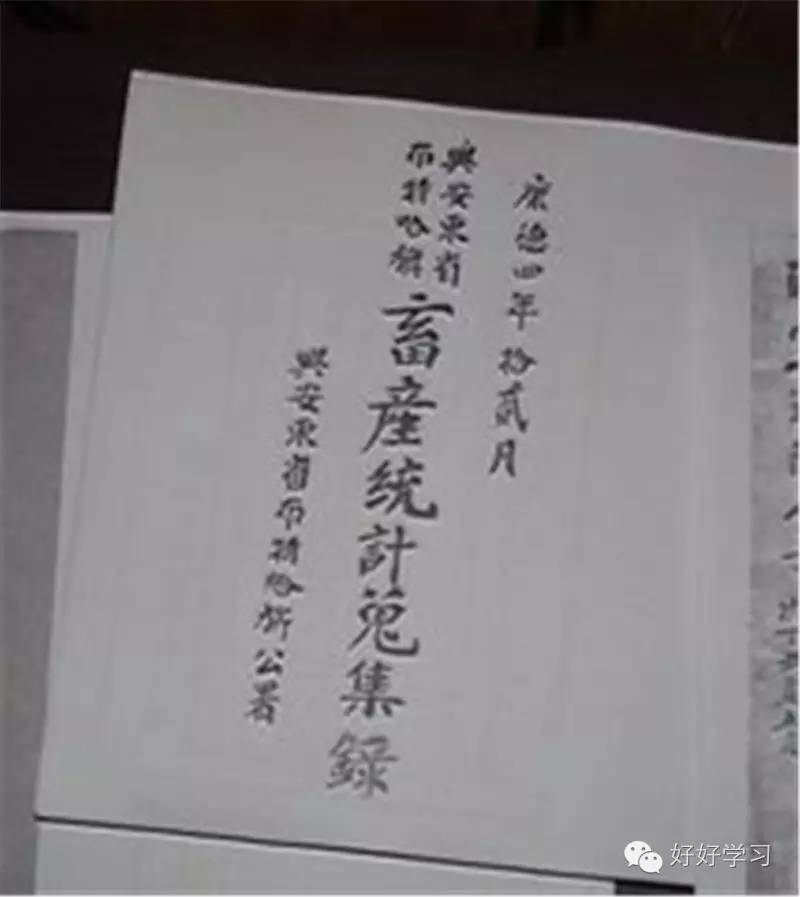 康德四年拾貳月
興安東省
布特哈旗
畜産統計蒐集録
興安東省布特哈旂公署
好好学习